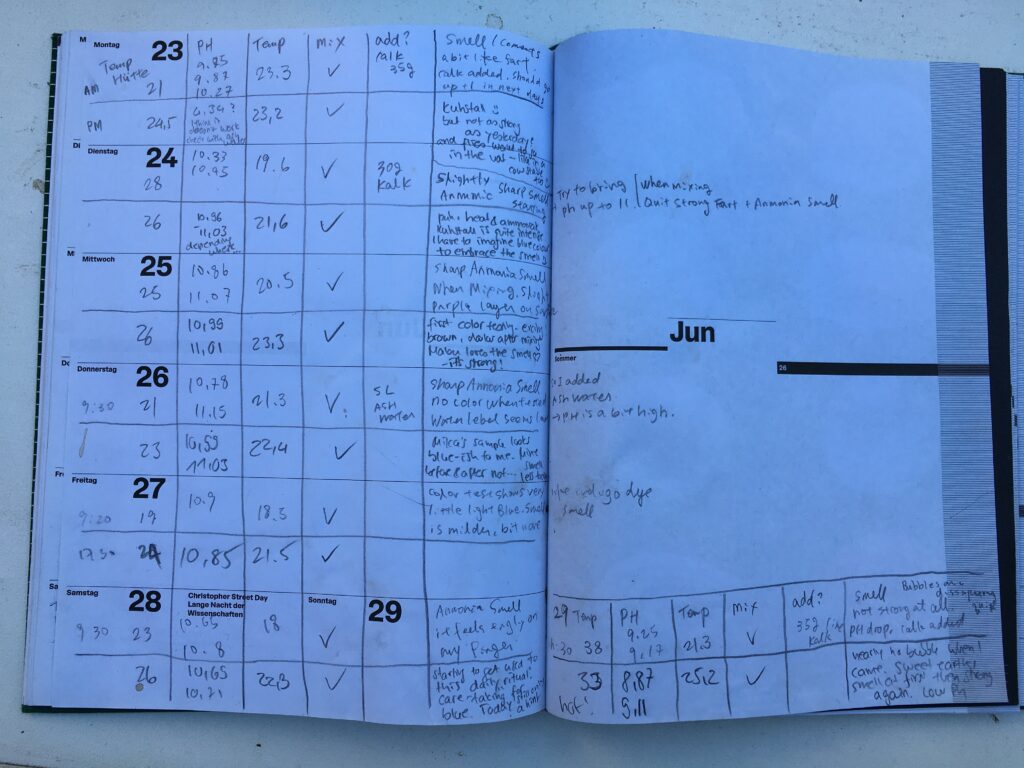 M Montag 23 PH Temp mix add? Smell / Coments
Temp Hütte 9.85 kalk 35g a bit like fart
AM 21 9.87 23.3 ✓ kalk added. should go
10.27 up +1 in next days
PM 24,5 6,34? 23,2 ✓ Kuhstall
doesn't work but not as strong
as yesterday!
in the
Di Dienstag 24 10.33 19.6 ✓ 30g Kalk Slightly sharp smell
28 10.95 starting
Try to bring / when mixing
ph up to 11 / Quit Strong Fart + Ammonia Smell
26 10,96 21,6 ✓ puh, heat & ammonia
-11,03 Kuhstall is quite intense
depending where... I have to imagine blue
to embrace the smell
Mittwoch 25 10.86 20.5 ✓ sharp Ammonia Smell
25 11.07 when Mixing. Slight
purple layer on
26 10,99 23,3 ✓ first color
11,01 brown, after
loves the smell
strong!
Jun
Sommer
26
Donnerstag 26 10,78 21.3 ✓ 5L ASH water sharp Ammonia Smell
9:30 21 11.15 no color when
Water seems
added
ASH water
→ PH is a bit high.
23 10,99 22,4 ✓ sample looks
11,03 blue-ish to me.
before & after not... smell
less
Freitag 27 10.9 18.5 ✓ color test shows very
9:20 19 little light Blue. Smell
is milder, bit more
indigo dye
smell
17.30 24 10,85 21.5 ✓
Samstag 28 Christopher Street Day
Lange Nacht der
Wissenschaften
Sonntag 29
9 30 23 10.65 18 ✓ Ammonia Smell
10.8 it feels on
my finger
26 10,65 22,3 ✓ starting to get used to
10,71 this daily ritual.
care-taking for
blue. Today
29 Temp PH Temp mix add? Smell Bubbles are disappearing
38 9.25 21.3 ✓ 35g Kalk not strong at all
9.17 PH drop, kalk added
33 8,87 25,2 ✓ nearly no bubble when I
hot! 9,11 came. sweet
smell at first then strong
again. Low PH